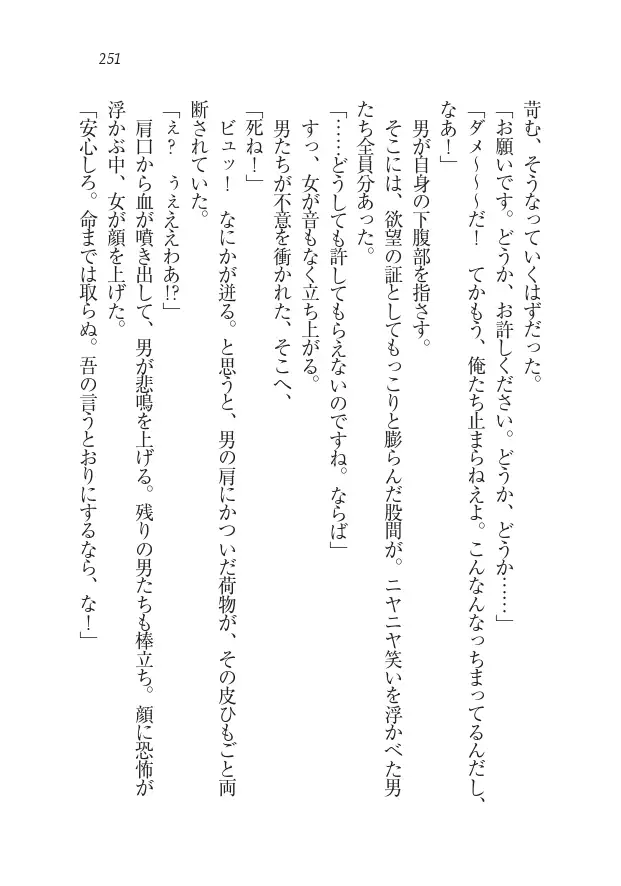 251
苛む、そうなっていくはずだった。
「お願いです。どうか、お許しください。どうか、どうか……」
「ダメ～～～だ！　てかもう、俺たち止まらねえよ。こんなんなっちまってるんだし、
なあ！」
男が自身の下腹部を指さす。
そこには、欲望の証としてもっこりと膨らんだ股間が。ニヤニヤ笑いを浮かべた男
たち全員分あった。
「……どうしても許してもらえないのですね。ならば」
すっ、女が音もなく立ち上がる。
男たちが不意を衝かれた、そこへ、
「死ね！」
ビュッ！　なにかが迸る。と思うと、男の肩にかついだ荷物が、その皮ひもごと両
断されていた。
「え？　うぇええわあ!?」
肩口から血が噴き出して、男が悲鳴を上げる。残りの男たちも棒立ち。顔に恐怖が
浮かぶ中、女が顔を上げた。
「安心しろ。命までは取らぬ。吾の言うとおりにするなら、な！」